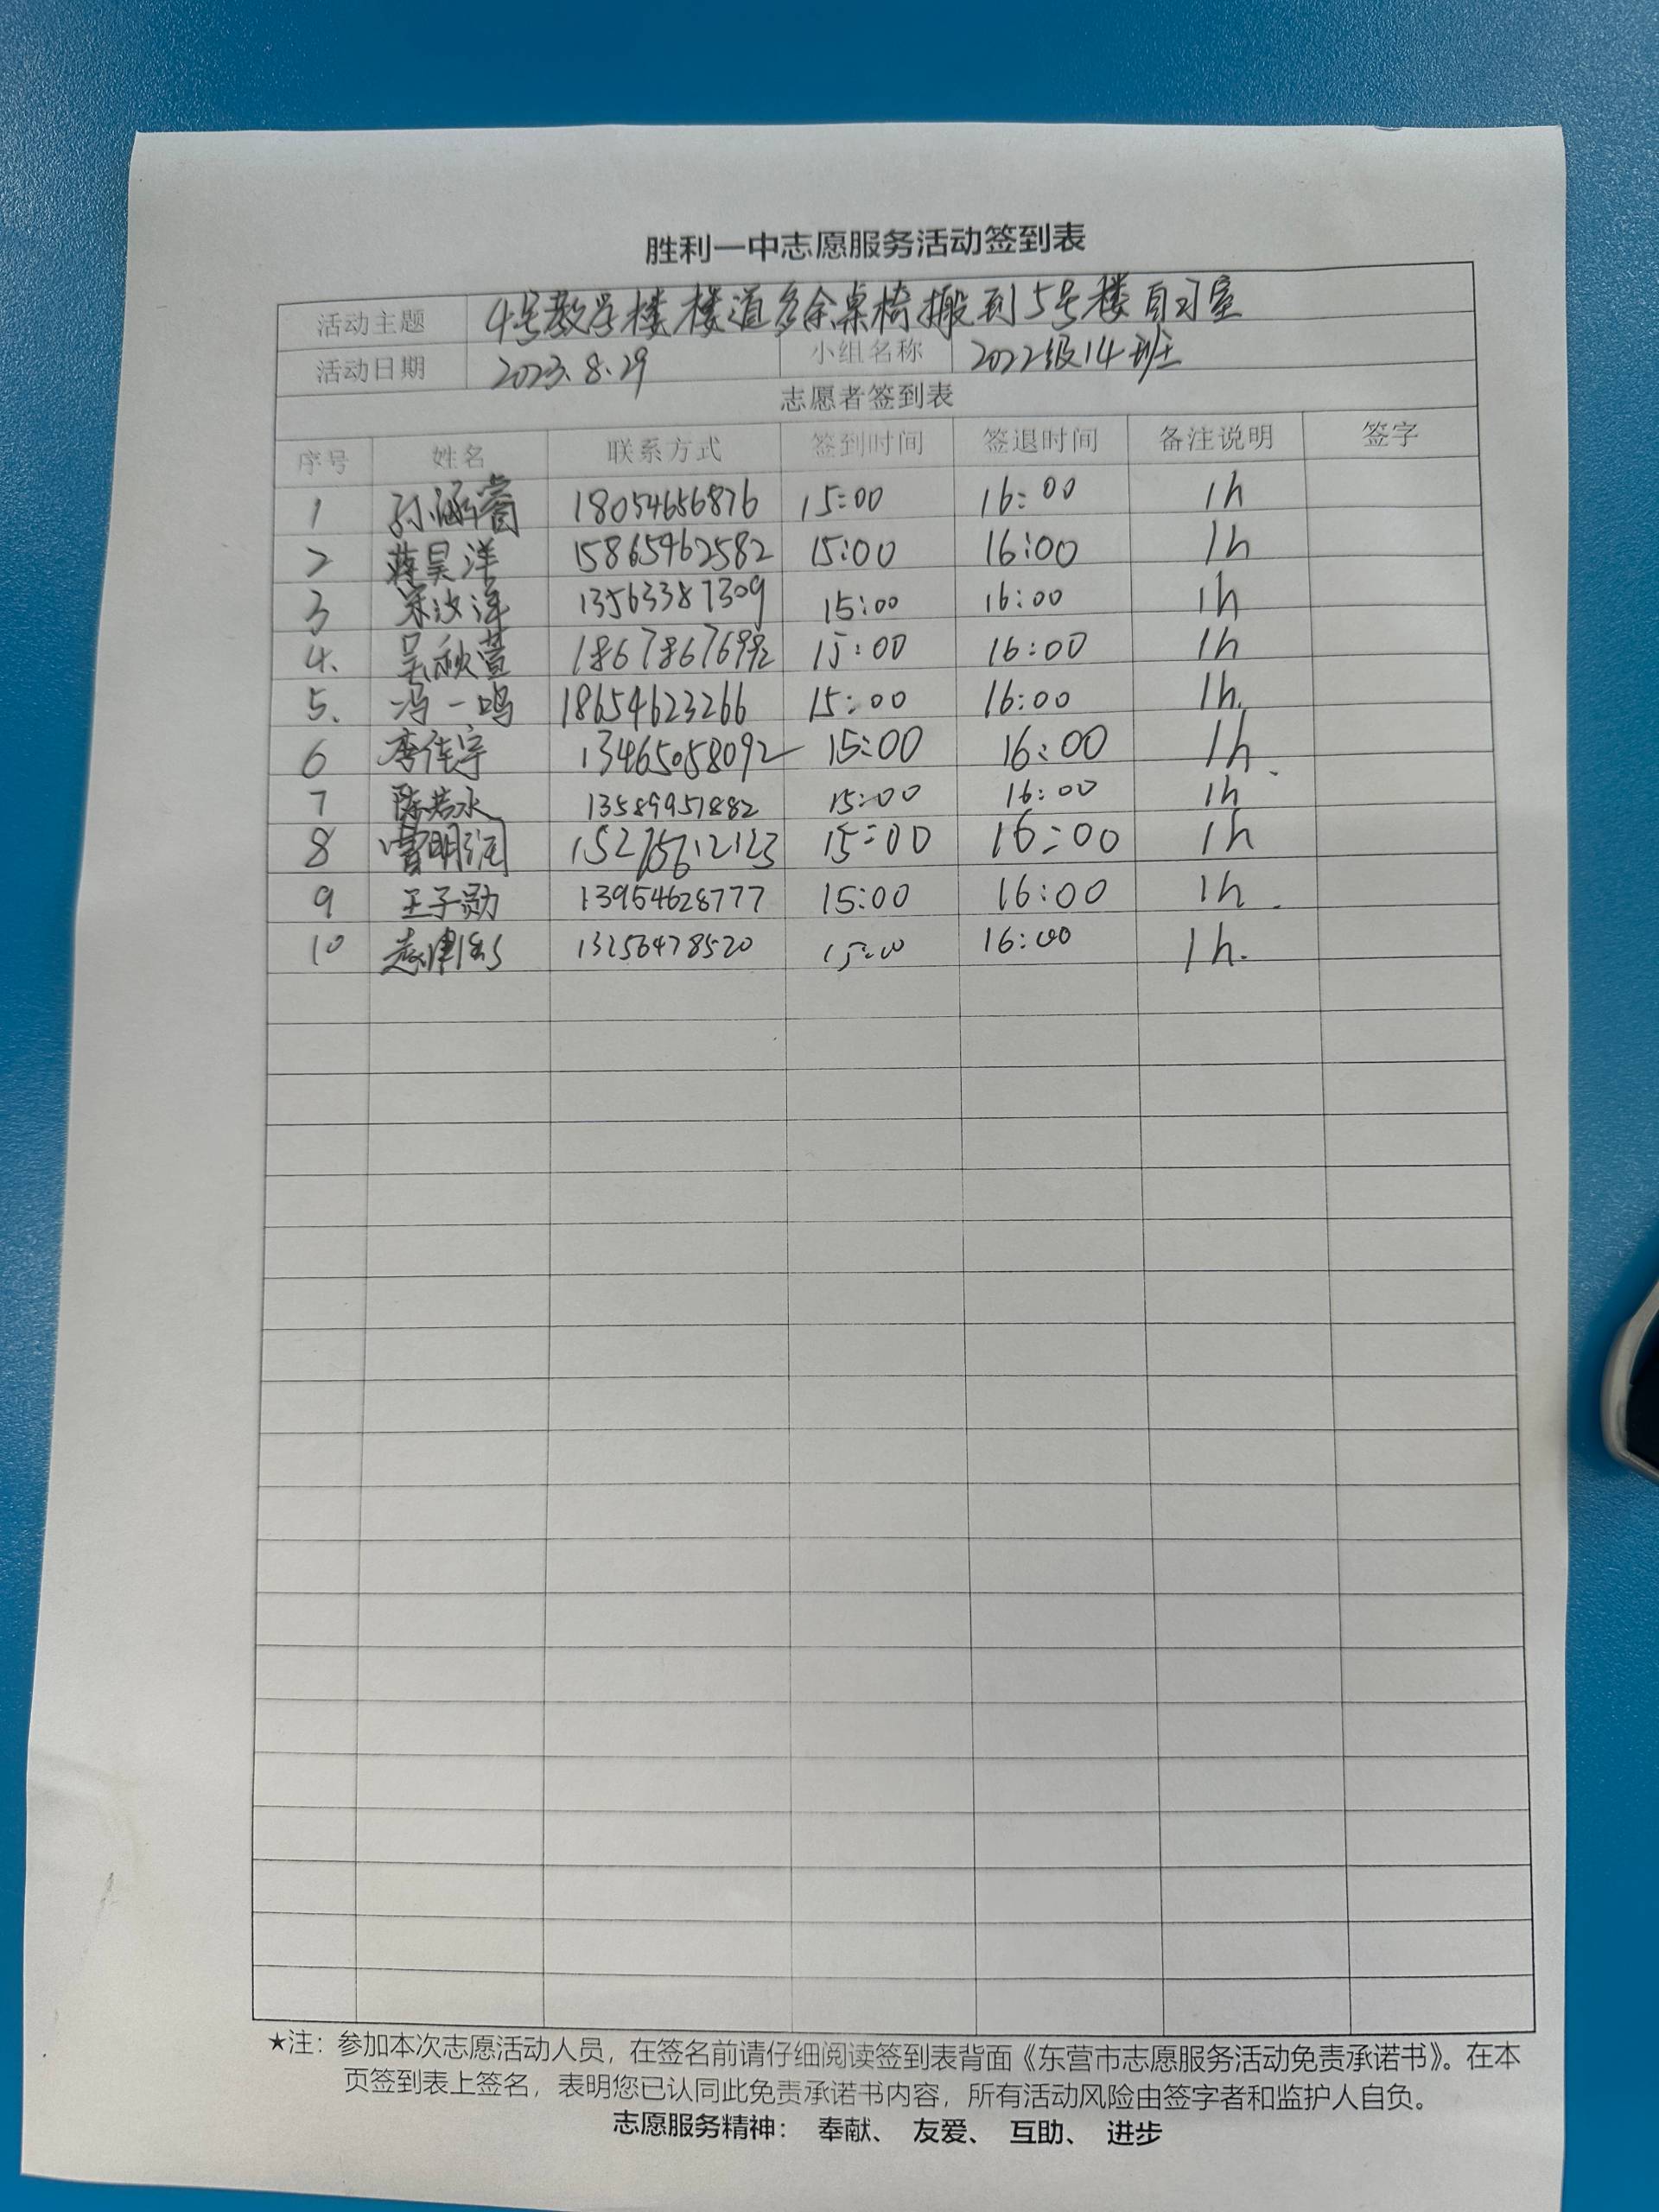 胜利一中志愿服务活动签到表
活动主题 4号教学楼楼道多余桌椅搬到5号楼自习室
活动日期 2023.8.29 小组名称 2022级14班
志愿者签到表
序号 姓名 联系方式 签到时间 签退时间 备注说明 签字
1 孙涵 18054656876 15:00 16:00 1h
2 蒋昊洋 15865462582 15:00 16:00 1h
3 宋汶泽 13563387309 15:00 16:00 1h
4. 吴秋萱 15:00 16:00 1h
5. 冯一鸣 18654623266 15:00 16:00 1h.
6 李佳宇 13465058092 15:00 16:00 1h.
7 陈若水 13589951882 15:00 16:00 1h
8 曹明润 15:00 16:00 1h
9 王子勋 13954628777 15:00 16:00 1h.
10 13256478520 15:00 16:00 1h.
★注：参加本次志愿活动人员，在签名前请仔细阅读签到表背面《东营市志愿服务活动免责承诺书》。在本
页签到表上签名，表明您已认同此免责承诺书内容，所有活动风险由签字者和监护人自负。
志愿服务精神： 奉献、 友爱、 互助、 进步